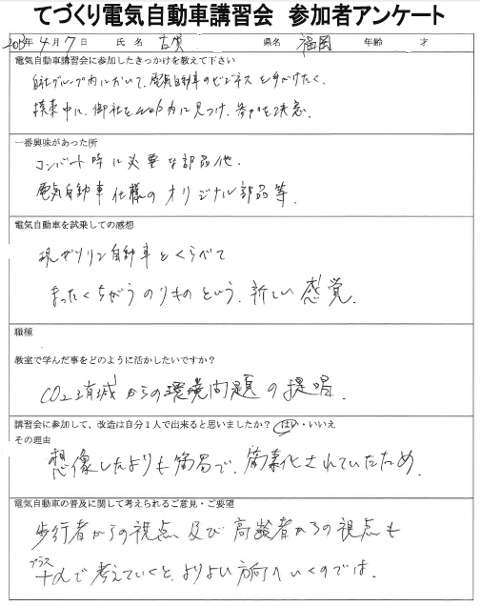 てづくり電気自動車講習会 参加者アンケート
年 4月 7日 氏 名 古賀 県名 福岡 年齢 才
電気自動車講習会に参加したきっかけを教えて下さい
自社グループ内において、電気自動車のビジネスを手がけたく、
模索中に、御社をweb内に見つけ、参加を決意。
一番興味があった所
コンバート時に必要な部品他、
電気自動車仕様のオリジナル部品等。
電気自動車を試乗しての感想
現ガソリン自動車とくらべて
まったくちがうのりものという、新しい感覚。
職種
教室で学んだ事をどのように活かしたいですか？
CO2削減からの環境問題の提唱。
講習会に参加して、改造は自分１人で出来ると思いましたか？ はい・いいえ
その理由
想像したよりも簡易で、簡素化されていたため。
電気自動車の普及に関して考えられるご意見・ご要望
歩行者からの視点、及び高齢者からの視点も
プラス
+αで考えていくと、よりよい方向へいくのでは。